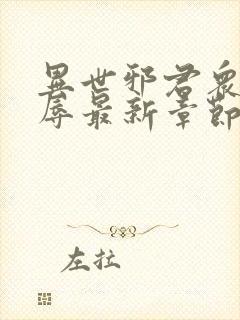 異世邪君衆
辱最新章節
左拉